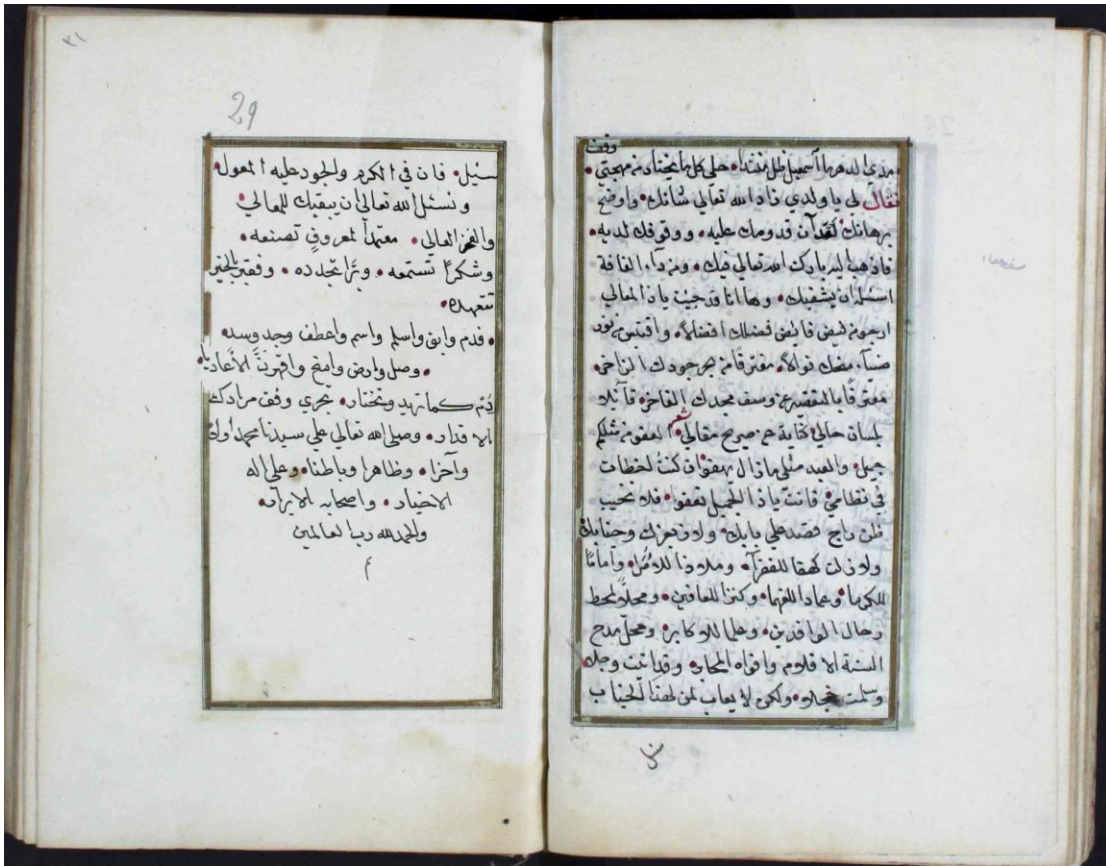 وقف
فقال لي يا ولدي زاد الله تعالى شانك واوضح
برهانك لقد آن قدومك عليه ووقوفك لديه
فاذهب اليه بارك الله تعالى فيك ومن داء الفاقة
اسئله ان يشفيك وها انا قد جيت ياذا المعالي
ارجو من فيض فايض فضلك افضالا واقتبس من نور
ضيآء نوالا مغترفا من بحر جودك الزاخر
معترفا بالتقصير عن وصف مجدك الفاخر قآئلا
بلسان حالي كناية عن صريح مقالي شعر العفو من مثلكم
جميل والعبد مثلي ما زال يهفو ان كنت لخطات
في نظامي فانت ياذا الجميل تعفو فلا تخيب
ظن راج قصد علي بابك ولا زال عزك وجنابك
ولا زلت كهفا للفقرآء وملاذا للامرا وامانا
للكرما وعمادا للغرما وكنزا للعافين ومحلا لمحط
رحال الوافدين وعلما للاكابر ومحل مدح
السنة الاقلام وافواه المحابر وقد اتت وجله
وسلمت خجلا ولكن لا يعاب لمن لهذا الجناب
سئل
٣١
29
سئيل فان في الكرم والجود عليه المعول
ونسئل الله تعالى ان يبقيك للمعالي
والفخر العالي معتمدا لمعروف تصنعه
وشكرا تستمعه وبرا تجدده وفقير بالخير
تتعهده
فدم وابق واسلم واسم واعطف وجد وسد
وصل وارض وامنح واقهرن الاعاديا
دم كما تريد وتختار تجري وفق مرادك
الاقدار وصلى الله تعالى علي سيدنا محمد اولا
وآخرا وظاهرا وباطنا وعلى اله
الاخيار واصحابه الابرار
والحمد لله رب العالمين
م